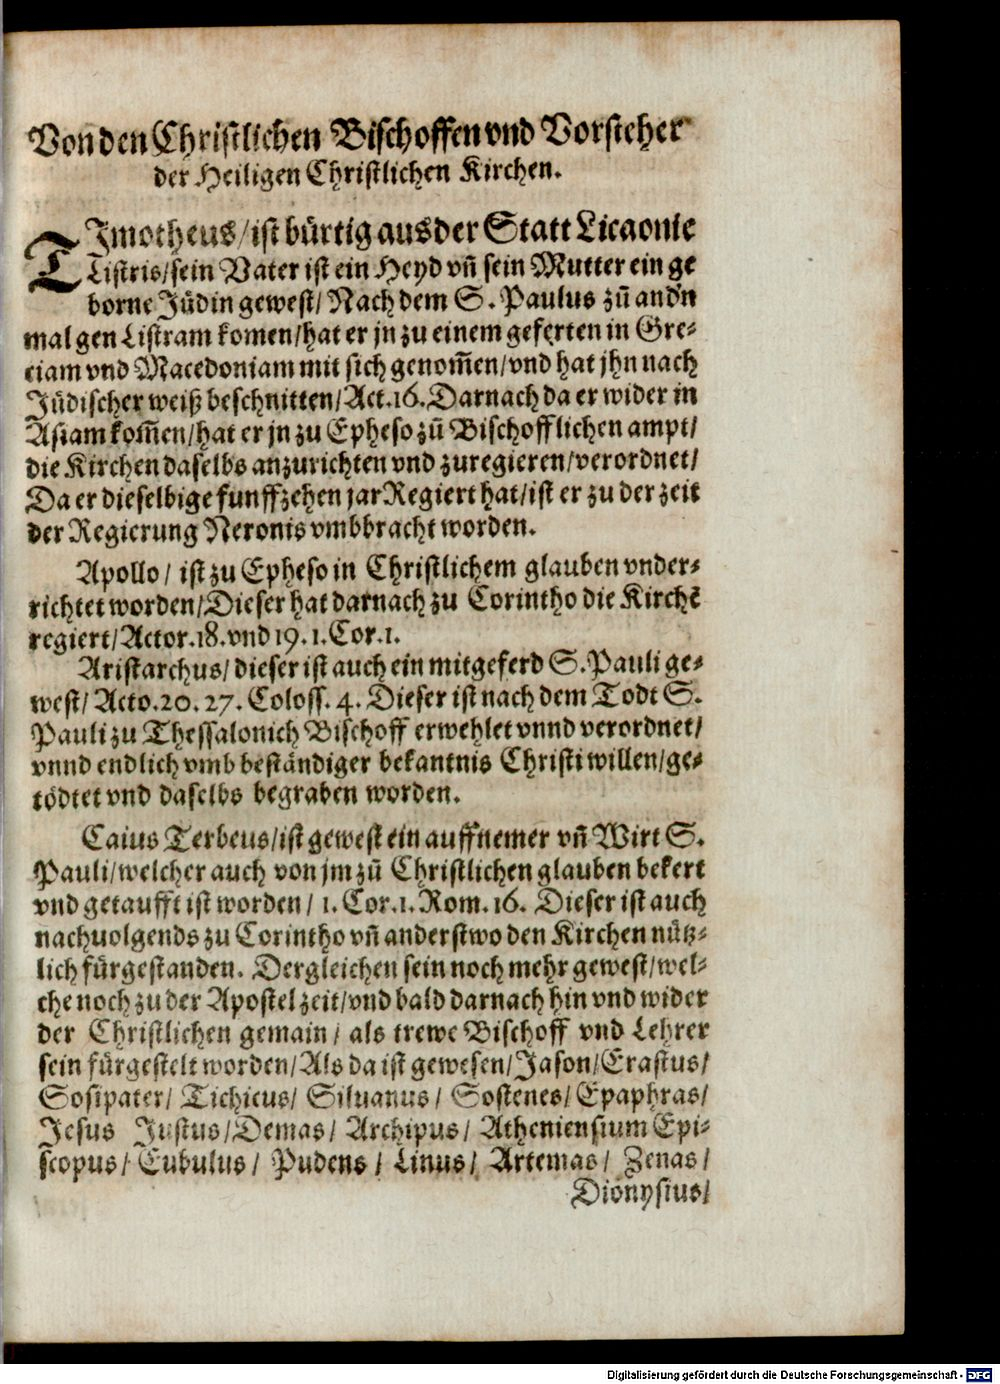 Von den Christlichen Bischoffen vnd Vorsteher
der Heiligen Christlichen Kirchen.
TImotheus/ ist bürtig aus der Statt Licaonie
Listris/ sein Vater ist ein Heyd vñ sein Mutter ein ge
borne Jüdin gewest/ Nach dem S. Paulus zũ andn
mal gen Listram komen/ hat er jn zu einem geferten in Gre-
ciam vnd Macedoniam mit sich genom̃en/ vnd hat jhn nach
Jüdischer weiß beschnitten/ Act. 16. Darnach da er wider in
Asiam kom̃en/ hat er jn zu Epheso zũ Bischofflichen ampt/
die Kirchen daselbs anzurichten vnd zuregieren/ verordnet/
Da er dieselbige funffzehen jar Regiert hat/ ist er zu der zeit
der Regierung Neronis vmbbracht worden.
Apollo/ ist zu Epheso in Christlichem glauben vnder-
richtet worden/ Dieser hat darnach zu Corintho die Kirchẽ
regiert/ Actor. 18. vnd 19. 1. Cor. 1.
Aristarchus/ dieser ist auch ein mitgeferd S. Pauli ge-
west/ Acto. 20. 27. Coloss. 4. Dieser ist nach dem Todt S.
Pauli zu Thessalonich Bischoff erwehlet vnnd verordnet/
vnnd endlich vmb beständiger bekantnis Christi willen/ ge-
tödtet vnd daselbs begraben worden.
Caius Terbeus/ ist gewest ein auffnemer vñ Wirt S.
Pauli/ welcher auch von jm zũ Christlichen glauben bekert
vnd getaufft ist worden/ 1. Cor. 1. Rom. 16. Dieser ist auch
nachuolgends zu Corintho vñ anderstwo den Kirchen nütz-
lich fürgestanden. Dergleichen sein noch mehr gewest/ wel-
che noch zu der Apostel zeit/ vnd bald darnach hin vnd wider
der Christlichen gemain/ als trewe Bischoff vnd Lehrer
sein fürgestelt worden/ Als da ist gewesen/ Jason/ Erastus/
Sosipater/ Tichicus/ Siluanus/ Sostenes/ Epaphras/
Jesus Justus/ Demas/ Archipus/ Atheniensium Epi-
scopus/ Eubulus/ Pudens/ Linus/ Artemas/ Zenas/
Dionysius/
Digitalisierung gefördert durch die Deutsche Forschungsgemeinschaft - DFG